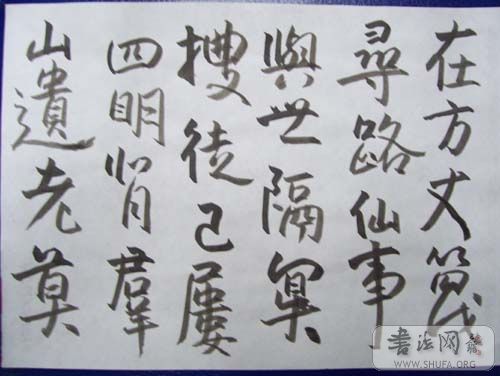 在方丈篾
尋路仙事
與世隔冥
搜徒已屢
四明背羣
山遺老莫
书法网
WWW.SHUFA.ORG